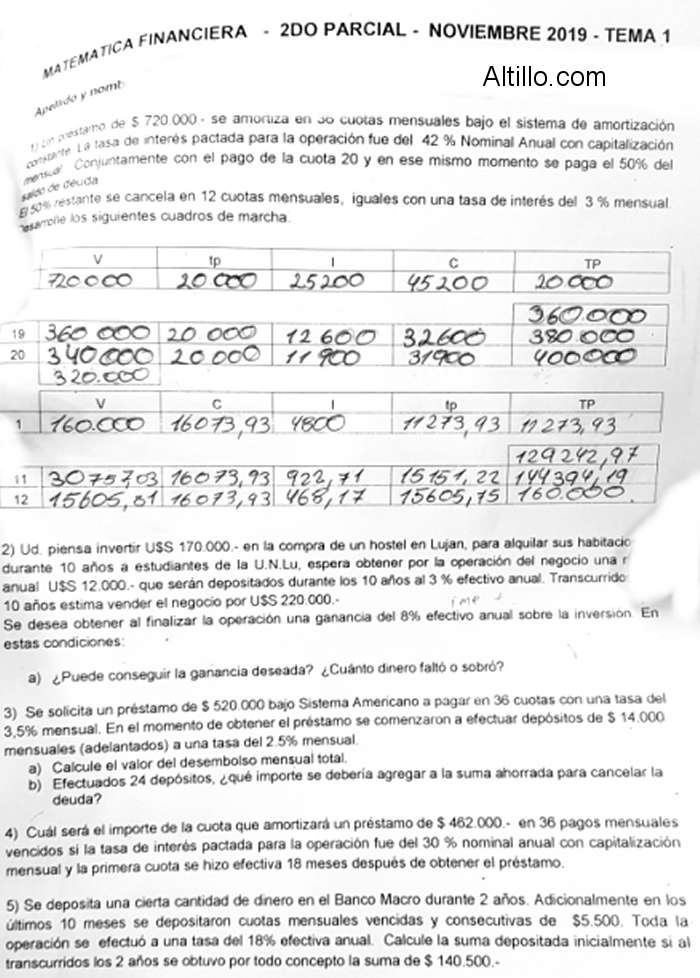 MATEMATICA FINANCIERA - 2DO PARCIAL - NOVIEMBRE 2019 - TEMA 1
Altillo.com
Apellido y nomb
1) Un prestamo de $ 720.000.- se amortiza en 36 cuotas mensuales bajo el sistema de amortización
constante. La tasa de interés pactada para la operación fue del 42 % Nominal Anual con capitalización
mensual. Conjuntamente con el pago de la cuota 20 y en ese mismo momento se paga el 50% del
saldo de deuda
El 50% restante se cancela en 12 cuotas mensuales, iguales con una tasa de interés del 3 % mensual.
Desarrolle los siguientes cuadros de marcha.
V tp I C TP
720000 20000 25200 45200 20.000
360.000
19 360 000 20 000 12 600 32600 380.000
20 340000 20000 11 900 31900 400000
320.000
V C I tp TP
1 160.000 16073,93 4800 11273,93 11273,93
129242,97
11 30757,03 16073,93 922,71 15151,22 144394,19
12 15605,81 16073,93 468,17 15605,75 160.000
2) Ud. piensa invertir U$S 170.000.- en la compra de un hostel en Lujan, para alquilar sus habitacio
durante 10 años a estudiantes de la U.N.Lu, espera obtener por la operación del negocio una r
anual U$S 12.000.- que serán depositados durante los 10 años al 3 % efectivo anual. Transcurrido
10 años estima vender el negocio por U$S 220.000.-
Se desea obtener al finalizar la operación una ganancia del 8% efectivo anual sobre la inversión. En
estas condiciones:
a) ¿Puede conseguir la ganancia deseada? ¿Cuánto dinero faltó o sobró?
3) Se solicita un préstamo de $ 520.000 bajo Sistema Americano a pagar en 36 cuotas con una tasa del
3,5% mensual. En el momento de obtener el préstamo se comenzaron a efectuar depósitos de $ 14.000
mensuales (adelantados) a una tasa del 2.5% mensual.
a) Calcule el valor del desembolso mensual total.
b) Efectuados 24 depósitos, ¿qué importe se debería agregar a la suma ahorrada para cancelar la
deuda?
4) Cuál será el importe de la cuota que amortizará un préstamo de $ 462.000.- en 36 pagos mensuales
vencidos si la tasa de interés pactada para la operación fue del 30 % nominal anual con capitalización
mensual y la primera cuota se hizo efectiva 18 meses después de obtener el préstamo.
5) Se deposita una cierta cantidad de dinero en el Banco Macro durante 2 años. Adicionalmente en los
últimos 10 meses se depositaron cuotas mensuales vencidas y consecutivas de $5.500. Toda la
operación se efectuó a una tasa del 18% efectiva anual. Calcule la suma depositada inicialmente si al
transcurridos los 2 años se obtuvo por todo concepto la suma de $ 140.500.-